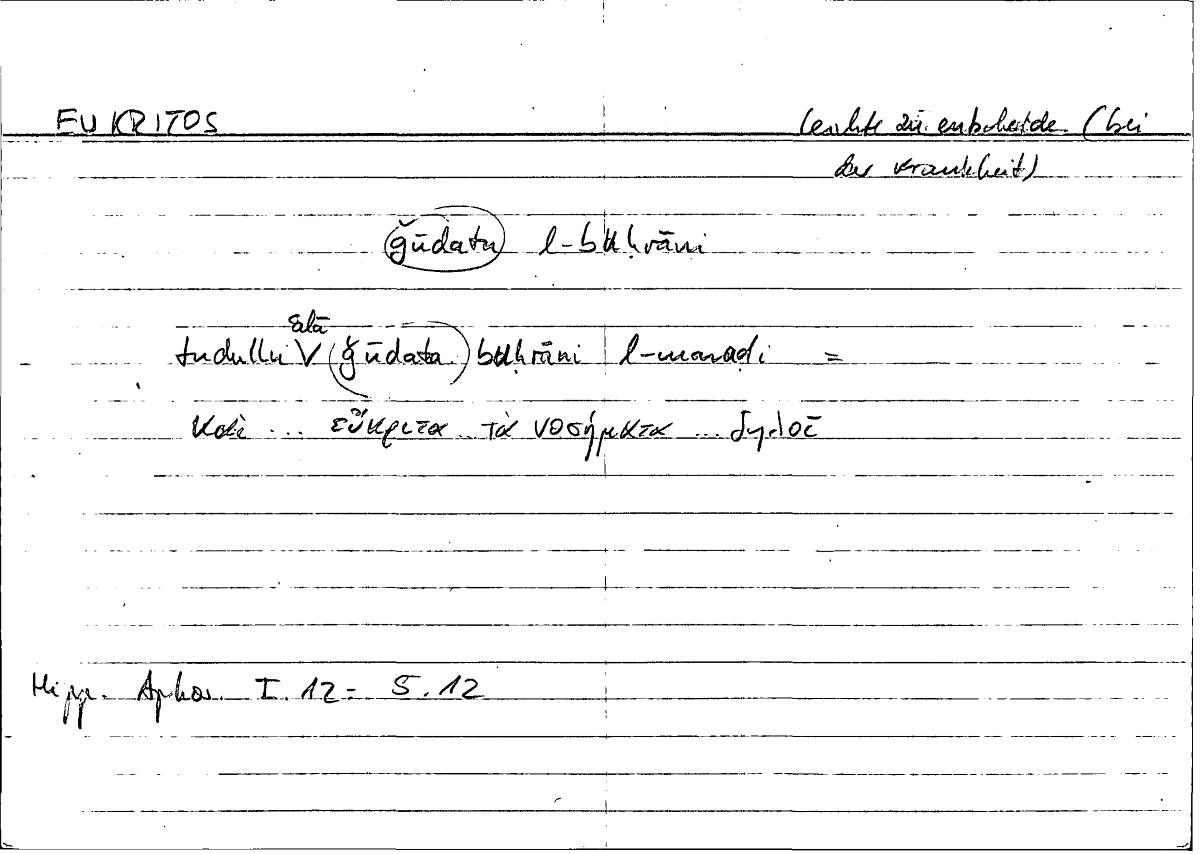 EUKRITOS leicht zu entscheiden (bei
der Krankheit)
ǧūdatu l-buḥrāni
ʿalā
tudullu V ǧūdata buḥrāni l-maraḍi =
καὶ ... εὔκριτα .. τὰ νοσήματα ... δηλοῖ
Hipp. Aphor. I. 12 = 5.12